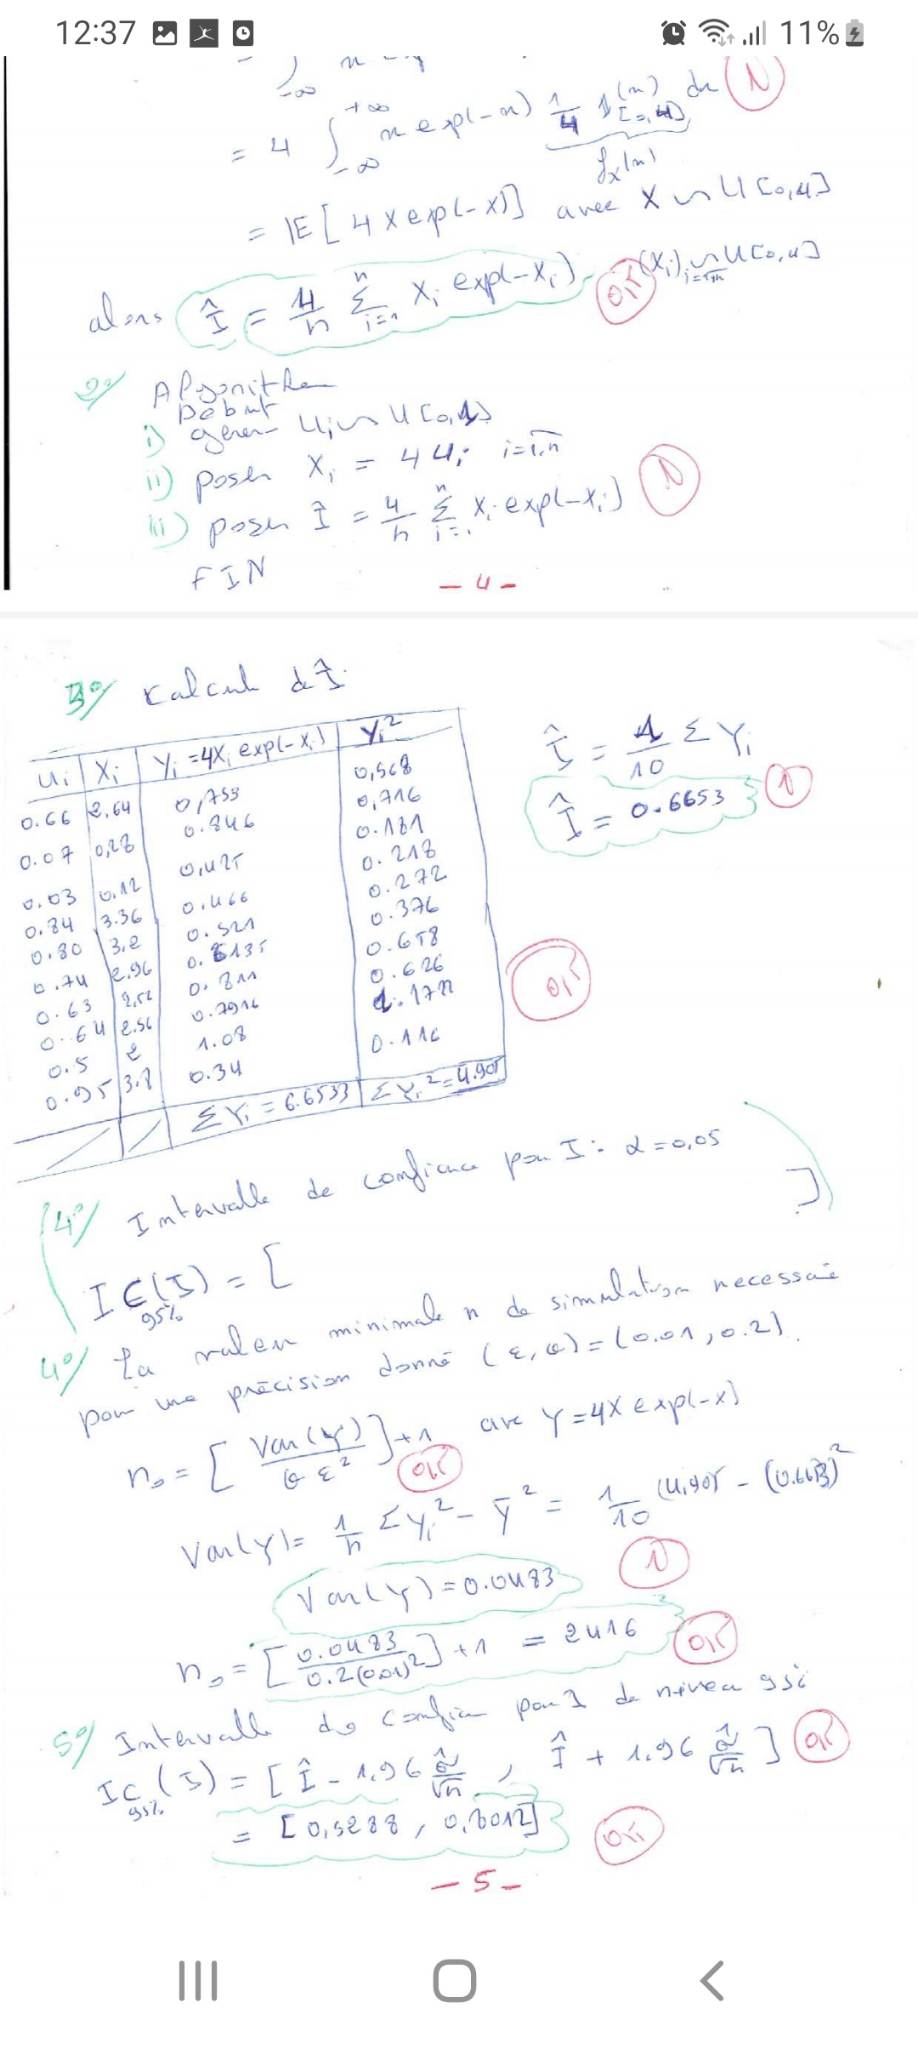 12:37 11%
-∞
= 4 ∫ +∞ -∞ x exp(-x) 1/4 1(x) [0,4] dx 1
fx(x)
= IE [4 X exp(-X)] avec X ~ U[0,4]
alors Î = 4/n Σ n i=1 Xi exp(-Xi) 0,5 (Xi) i=1,n ~ U[0,4]
2°/ Algorithe
Début
i) gener Ui ~ U[0,1]
ii) poser Xi = 4Ui i=1,n
iii) poser Î = 4/n Σ n i=1 Xi exp(-Xi) 1
FIN
- 4 -
3°/ Calcul d Î
Ui Xi Yi = 4Xi exp(-Xi) Yi²
0.66 2.64 0,753 0,568
0.07 0,28 0.846 0,716
0.03 0.12 0,425 0.181
0.84 3.36 0.466 0.218
0.80 3,2 0.521 0.272
0.74 2.96 0.6135 0.376
0.63 2,52 0.811 0.658
0.64 2.56 0.7916 0.626
0.5 2 1.08 1.172
0.95 3.8 0.34 0.116
Σ Yi = 6.6533 Σ Yi² = 4.905
Î = 1/10 Σ Yi
Î = 0.6653 1
0,5
4°/ Intervalle de confiance pour I : α = 0,05
IC(I) 95% = [ ]
4°/ La valeur minimale n de simulation necessaie
pour une précision donné (ε, θ) = (0.01, 0.2).
n₀ = [Var(Y) / θ ε²] + 1 avc Y = 4X exp(-X)
0,5
Var(Y) = 1/n Σ Yi² - Ȳ² = 1/10 (4,905 - (0.6653)²
1
Var(Y) = 0.0483
n₀ = [0.0483 / 0.2(0.01)²] + 1 = 2416 0,5
5°/ Intervalle de confian pour I de niveau 95%
IC 95% (I) = [Î - 1.96 σ̂/√n , Î + 1.96 σ̂/√n] 0,5
= [0,5288 , 0,8012] 0,5
- 5 -